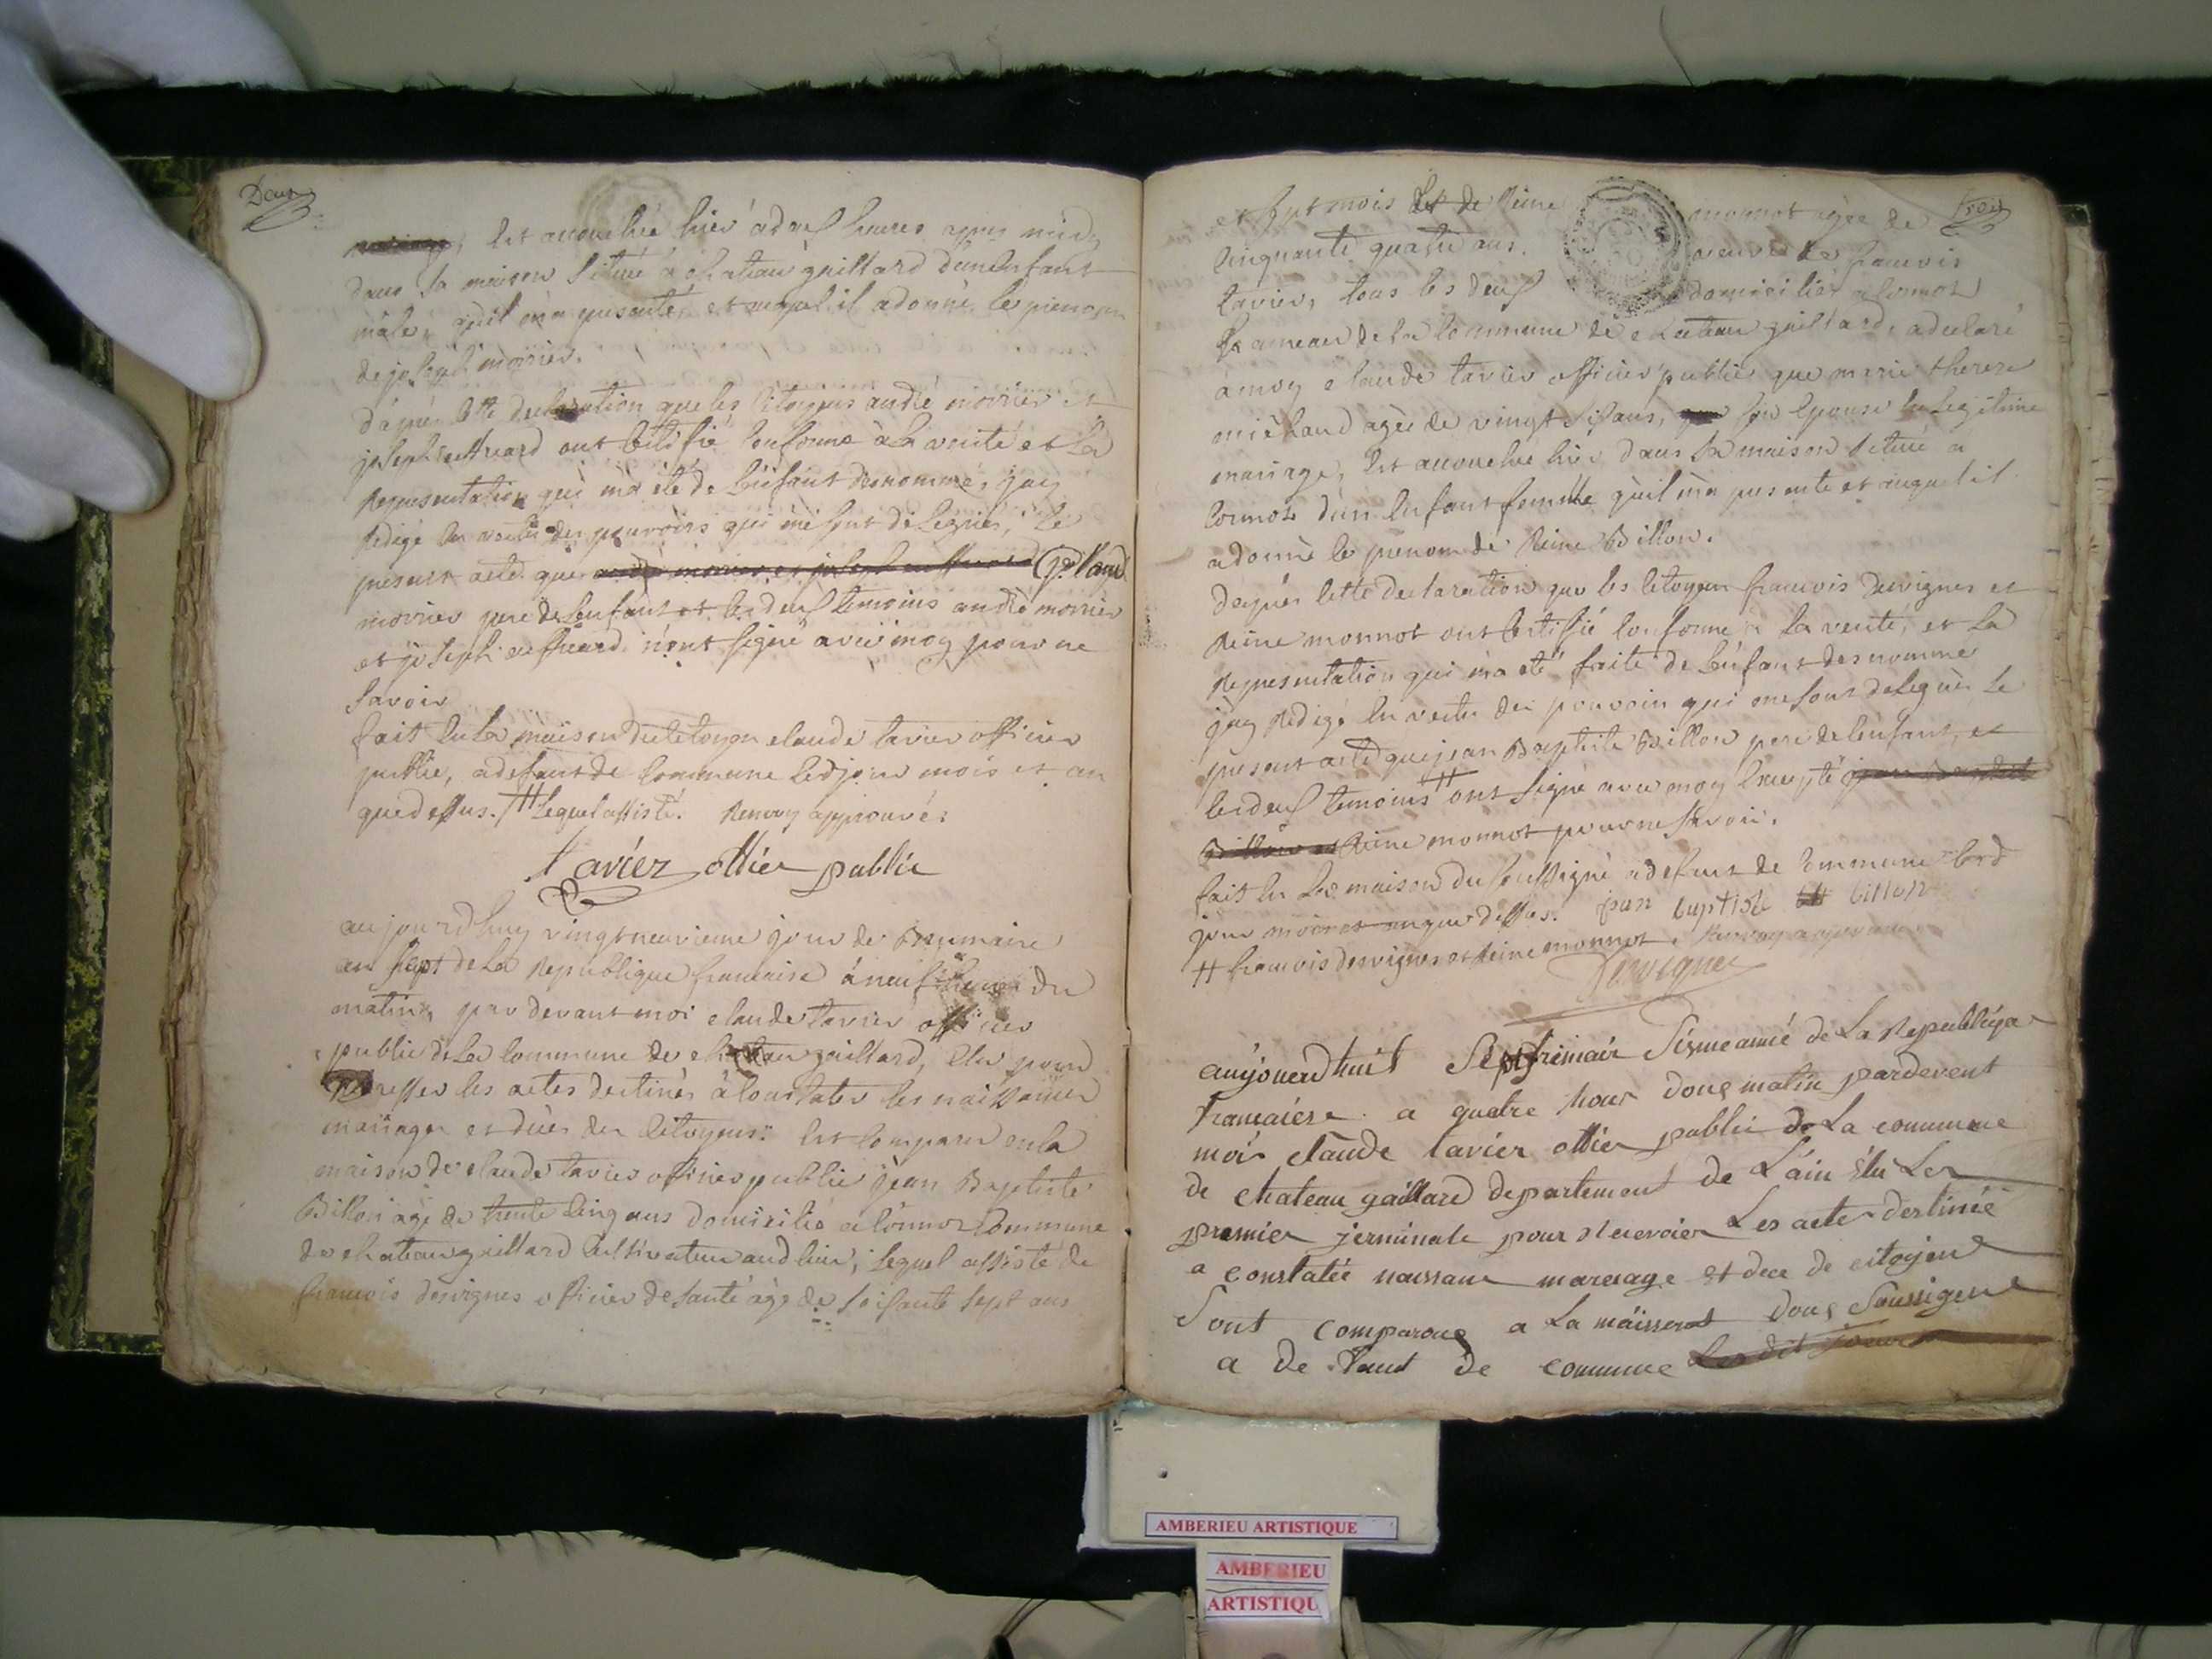 Deux
est accouchée hier à deux heures apres midy
dans sa maison située à chateau gaillard d'un enfant
mâle, qu'il m'a presenté, et auquel il a donné le prenom
de joseph morrier.
d'après cette declaration que les citoyens andré morrier et
joseph ont certifié conforme à la verité et la
representation qui m'a été de l'enfant denommé, j'ay
redigé en vertu des pouvoirs qui me sont delegués, le
present acte que andré morrier et joseph
morrier pere de l'enfant et les deux temoins andré morrier
et joseph n'ont signé avec moy pour ne
savoir
fait en la maison du citoyen claude tavier officier
public, a defaut de commune led jour mois et an
que dessus. # lequel assisté. Renvoy approuvé.
tavier ottier public
aujourd'huy vingtneuvieme jour de Brumaire
an sept de la Republique francaise à neuf heures du
matin, par devant moi claude tavier officier
public de la commune de chateau gaillard, elu pour
dresser les actes destinés à constater les naissances
mariages et décès des citoyens. Est comparu en la
maison de claude tavier officier public jean Baptiste
Billon agé de trente cinq ans domicilié a cormoz commune
de chateau gaillard cultivateur aud lieu, lequel assisté de
francois desvignes officier de santé âgé de soisante sept ans
trois
et sept mois et de Reine monnot agée de
cinquante quatre ans, veuve de francois
tavier, tous les deux domiciliés a cormoz
hameau de la commune de chateau gaillard, a declaré
à moy claude tavier officier public que marie therese
michaud agée de vingt six ans, son epouse en legitime
mariage, est accouchée hier dans sa maison située a
cormoz d'un enfant femelle qu'il m'a presenté et auquel il
a donné le prenom de Reine Billon.
d'après cette declaration que les citoyens francois desvignes et
Reine monnot ont certifié conforme à la verité, et la
representation qui m'a été faite de l'enfant denommé
j'ay redigé en vertu des pouvoirs qui me sont delegués le
present acte que jean Baptiste Billon pere de l'enfant, et
les deux temoins # ont signé avec moy excepté jean Baptiste
Billon et Reine monnot pour ne savoir.
fait en la maison du soussigné a defaut de commune led
jour mois et an que dessus. jean baptiste billon
# francois desvignes et Reine monnot. Renvoy approuvé
Desvignes
aujouerdhuit Sept frimair Sisme anné de La Republiqu
francaiese a quatre hour douç matin pardevent
moi claude tavier ottier public de La commune
de chateau gaillard departement de L'ain élu Ler
premier jerminale pour recevoier Les acte destinée
a constatée naissanc mareiage et dece de citoyien
Sont comparous a La maisson douç Soussigene
a de faut de commune Les dit jour
AMBERIEU ARTISTIQUE
AMBERIEU
ARTISTIQU